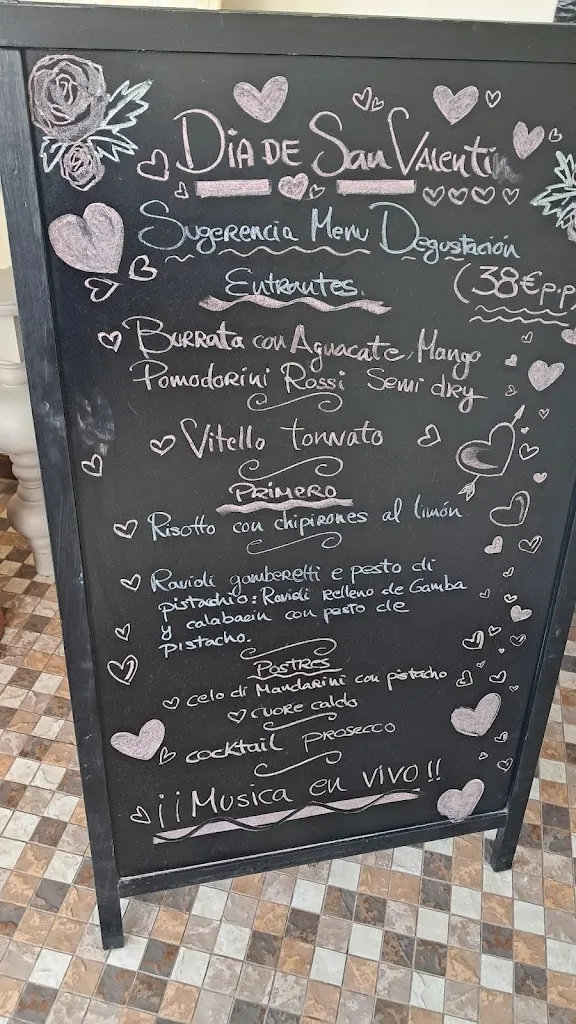 DIA DE San Valentin
Sugerencia Menu Degustación
Entrantes.
(38€ p.p)
Burrata con Aguacate, Mango
Pomodorini Rossi Semi dry
Vitello tonnato
PRIMERO
Risotto con chipirones al limón
Ravioli gamberetti e pesto di
pistachio: Ravioli relleno de Gamba
y calabacin con pesto de
pistacho.
Postres
celo di Mandarini con pistacho
cuore caldo
cocktail prosecco
¡¡Musica en vivo!!